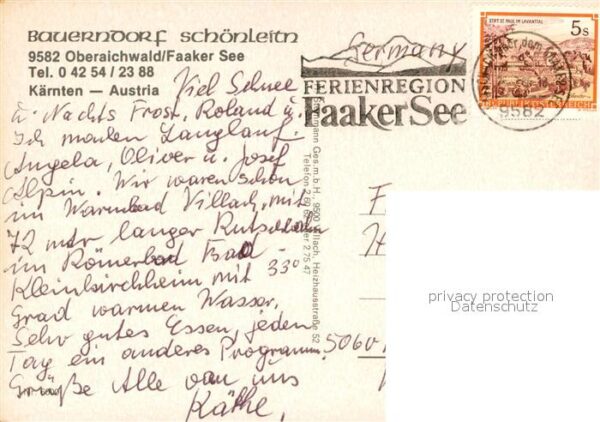 Bauerndorf schönleitn
9582 Oberaichwald/Faaker See
Tel. 0 42 54 / 23 88
Kärnten — Austria
Viel Schnee
u. Nachts Frost, Roland u.
Ich machen Langlauf.
Angela, Oliver u. Josef
Alpin. Wir waren schon
im Warmbad Villach, mit
72 mtr langer Rutschbahn
im Römerbad Bad
Kleinkirchheim mit 33°
Grad warmen Wasser.
Sehr gutes Essen, jeden
Tag ein anderes Programm.
Grüße Alle von uns
Käthe,
Germany
FERIENREGION
Faaker See
STIFT ST. PAUL IM LAVANTTAL
5 S
REPUBLIK ÖSTERREICH
9582
Ges.m.b.H., 9500 Villach, Heizhausstraße 52
Telefon
2 75 47
F
H
5060
privacy protection
Datenschutz